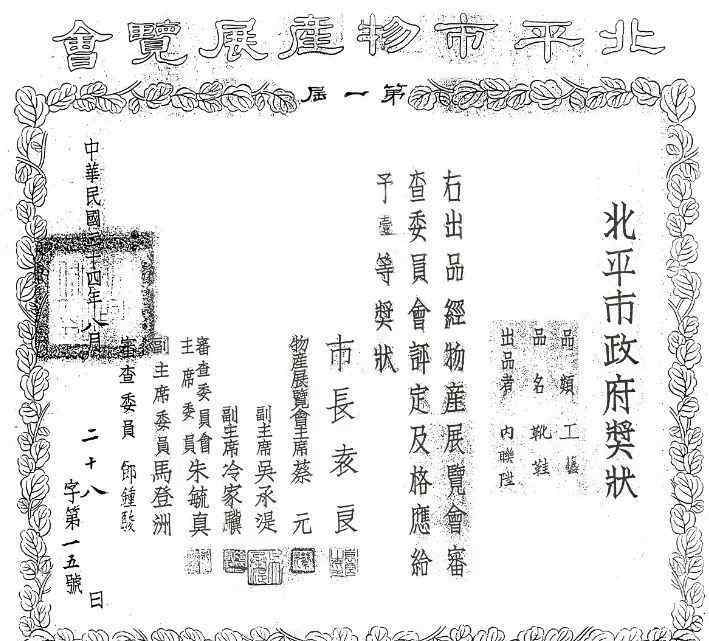 北平市物產展覽會
第一屆
北平市政府獎狀
品類 工藝
品名 靴鞋
出品者 內聯陞
右出品經物產展覽會審
查委員會評定及格應給
予壹等獎狀
市長袁良
物產展覽會主席蔡元
副主席吳承湜
副主席冷家驥
審查委員會主席委員朱毓真
副主席委員馬登洲
審查委員鄧鍾駿
中華民國二十四年八月二十八日
字第一五號